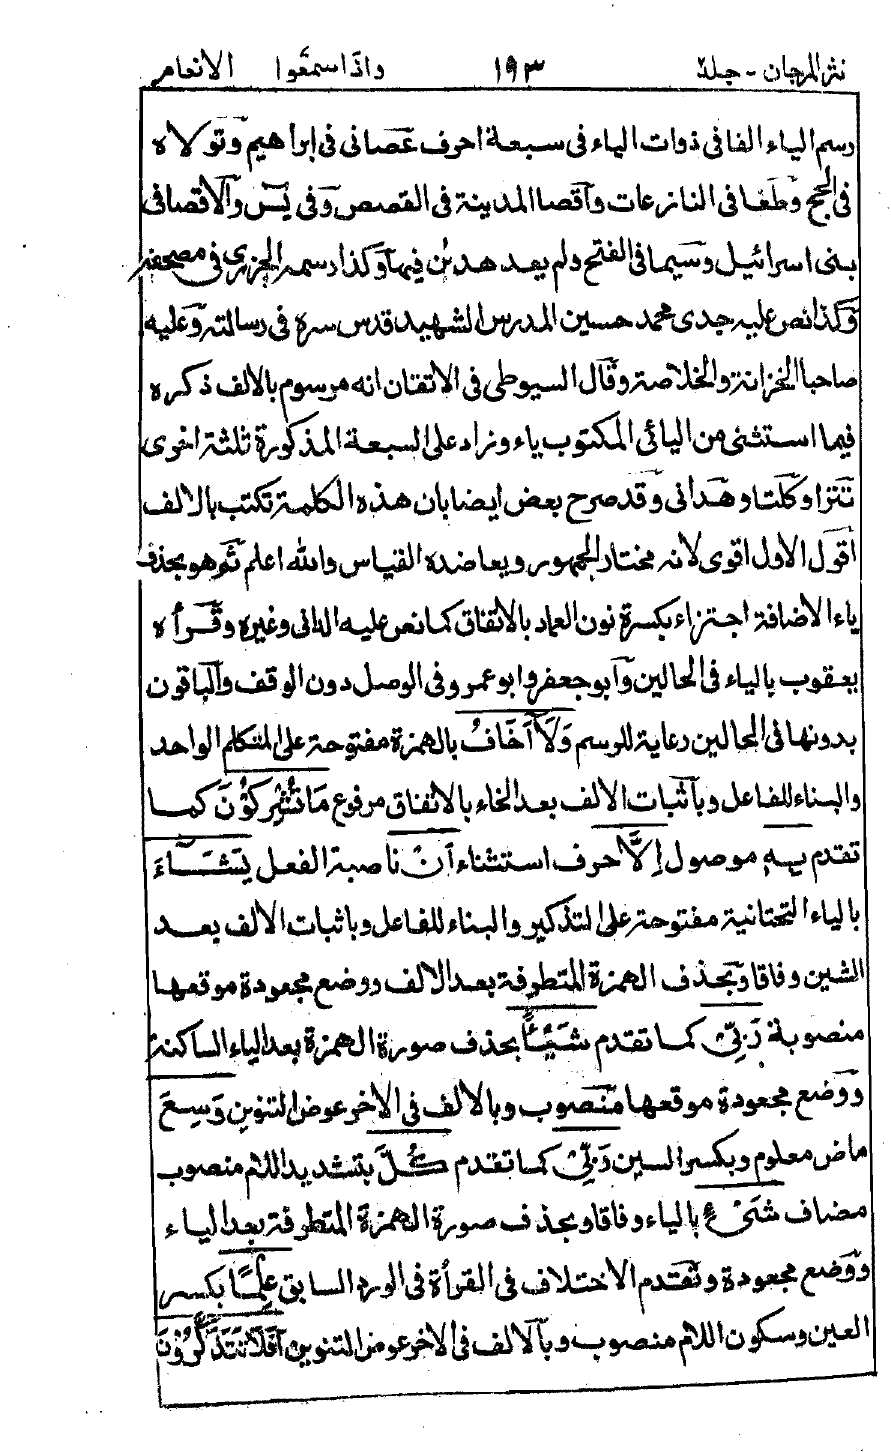 نثر المرجان - جلد ١٩٣ واذا سمعوا الانعام
رسم الياء الفا في ذوات الياء في سبعة احرف عصانى فى ابراهيم وتولاه
فى الحج وطغا فى النازعات واقصا المدينة فى القصص وفى يٰسٓ والاقصا فى
بنى اسرائيل وسيما فى الفتح ولم يعد هدٰىن فيها وكذا رسمه الجزرى فى مصحفه
وكذا نص عليه جدى محمد حسين المدرس الشهيد قدس سره فى رسالته وعليه
صاحبا الخزانة والخلاصة وقال السيوطى فى الاتقان انه مرسوم بالالف ذكره
فيما استثنى من اليائى المكتوب ياء وزاد على السبعة المذكورة ثلثة اخرى
تترا وكلتا وهدانى وقد صرح بعض ايضا بان هذه الكلمة تكتب بالالف
اقول الاول اقوى لانه مختار الجمهور ويعاضده القياس والله اعلم ثم هو بحذف
ياء الاضافة اجتزاء بكسرة نون العماد بالاتفاق كما نص عليه الدانى وغيره وقرأه
يعقوب بالياء فى الحالين وابو جعفر وابو عمرو فى الوصل دون الوقف والباقون
بدونها فى الحالين رعاية للرسم وَلَآ اَخَافُ بالهمزة مفتوحة على المتكلم الواحد
والبناء للفاعل وباثبات الالف بعد الخاء بالاتفاق مرفوع مَا تُشْرِكُوْنَ كما
تقدم بِهٖ موصول اِلَّآ حرف استثناء اَنْ ناصبة الفعل يَّشَآءَ
بالياء التحتانية مفتوحة على التذكير والبناء للفاعل وباثبات الالف بعد
الشين وفاقا وبحذف الهمزة المتطرفة بعد الالف ووضع مجعودة موقعها
منصوبة رَبِّىْ كما تقدم شَيْئًا بحذف صورة الهمزة بعد الياء الساكنة
ووضع مجعودة موقعها منصوب وبالالف فى الاخر عوض التنوين وَسِعَ
ماض معلوم وبكسر السين رَبِّىْ كما تقدم كُلَّ بتشديد اللام منصوب
مضاف شَىْءٍ بالياء وفاقا وبحذف صورة الهمزة المتطرفة بعد الياء
ووضع مجعودة وتقدم الاختلاف فى القرأة فى الورد السابق عِلْمًا بكسر
العين وسكون اللام منصوب وبالالف فى الاخر عوض التنوين اَفَلَا تَتَذَكَّرُوْنَ